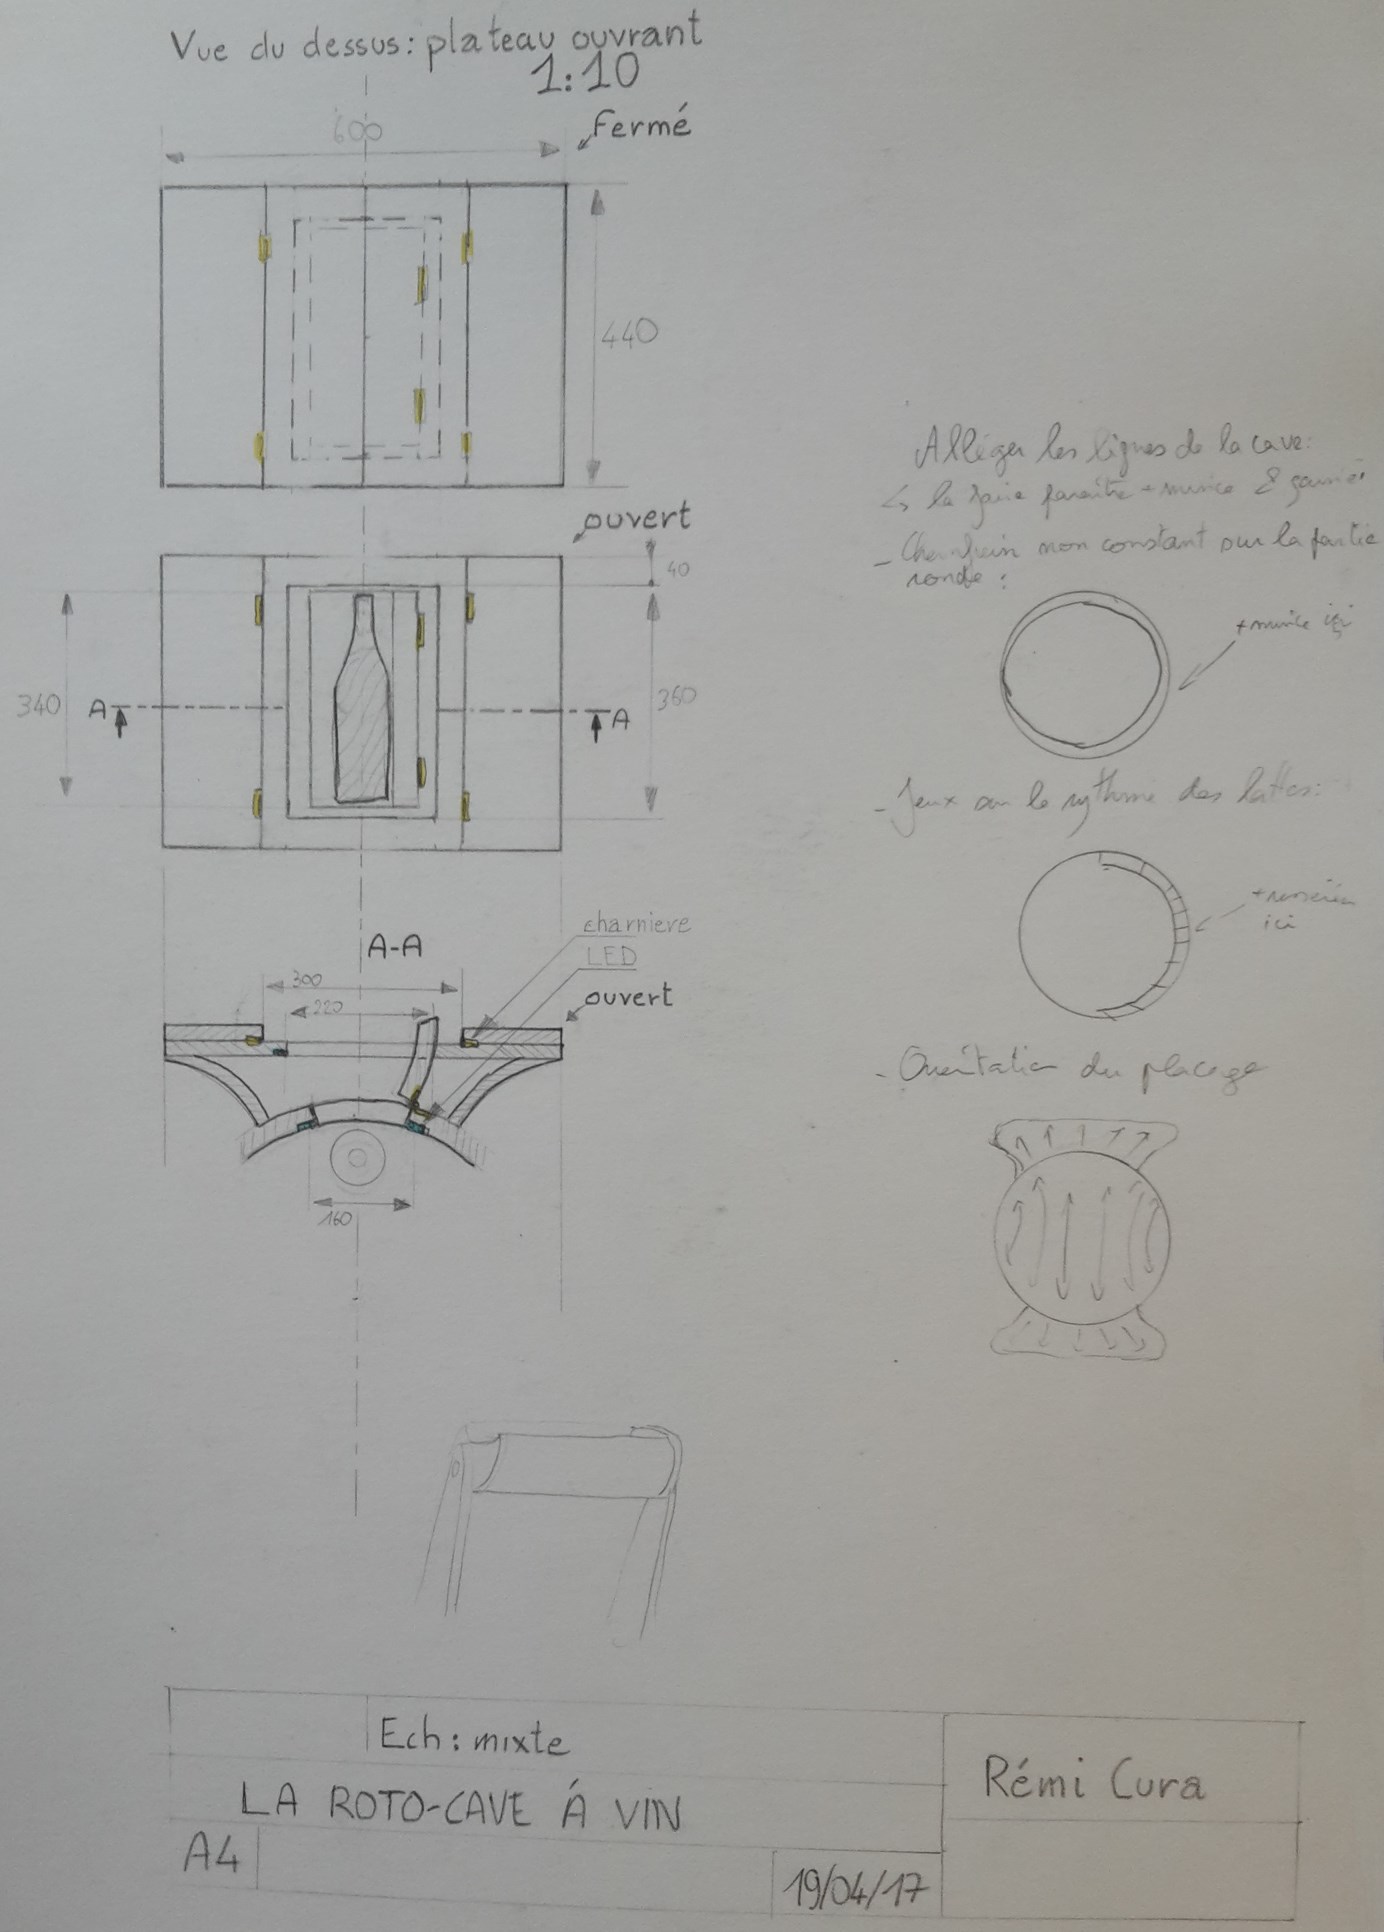 Vue du dessus: plateau ouvrant
1:10
Fermé
600
440
ouvert
40
340
A
A
360
A-A
charniere
LED
ouvert
300
220
160
Alléger les lignes de la cave:
↳ la faire paraître + mince &
- Chanfrein non constant sur la partie
ronde :
+ mince ici
- Jeux sur le rythme des lattes:
ici
- Orientation du placage
Ech: mixte
LA ROTO-CAVE Á VIN
A4
19/04/17
Rémi Cura